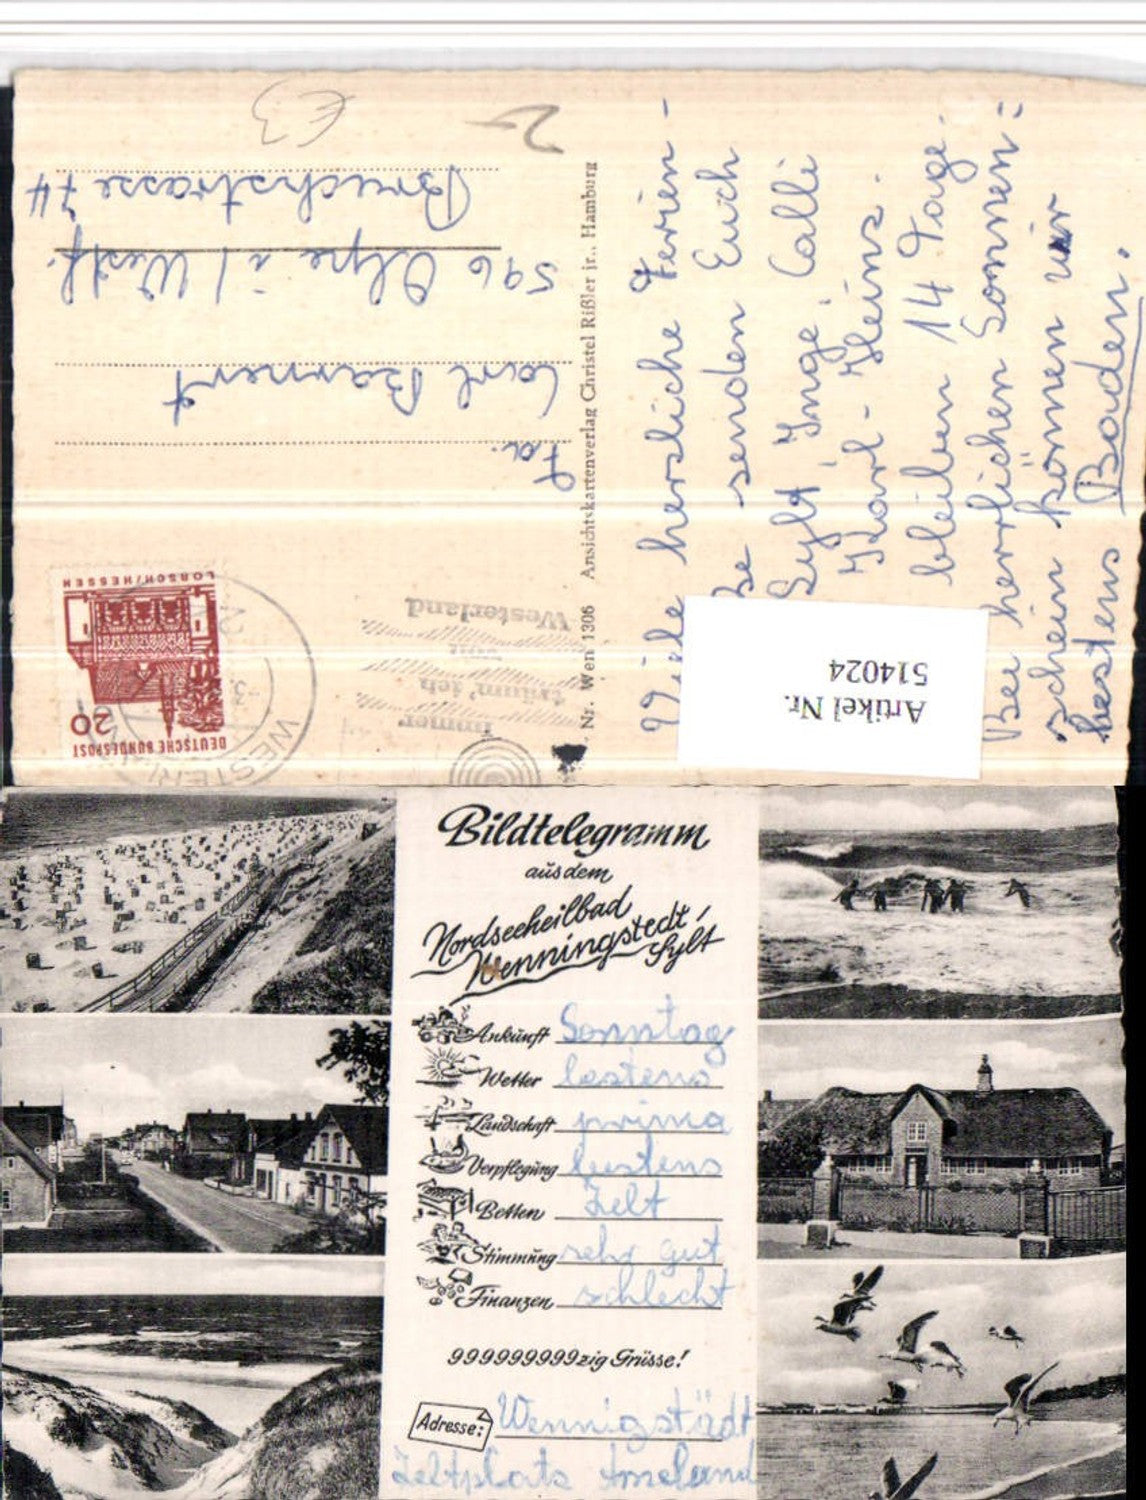 Viele herzliche Ferien-
senden Euch
Sylt, Inge, Calli
Karl-Heinz.
bleiben 14 Tage.
Bei herrlichen Sonnen=
schein können wir
bestens Baden.
Fa.
Carl Bannert
596 Olpe i/ Westf.
Bruchstrasse 74
2-
€3
Ansichtskartenverlag Christel Rißler jr., Hamburg
Nr. Wen 1306
DEUTSCHE BUNDESPOST
20
LORSCH/HESSEN
WESTERL
Immer
träum' ich
von
Westerland
Artikel Nr.
514024
Bildtelegramm
aus dem
Nordseeheilbad
Wenningstedt/
Sylt
Ankunft Sonntag
Wetter bestens
Landschaft prima
Verpflegung bestens
Betten Zelt
Stimmung sehr gut
Finanzen schlecht
999999999zig Grüsse!
Adresse: Wennigstädt
Zeltplatz